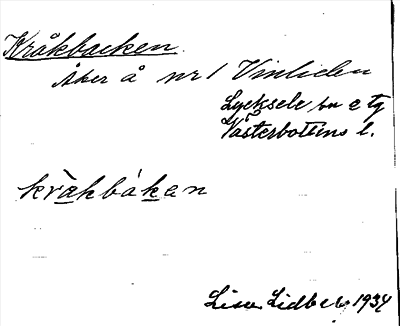 Kråkbacken.
Åker å nr 1 Vinliden
Lycksele sn o tg
Västerbottens l.
kràkbákan
Lisa Lidberg 1934